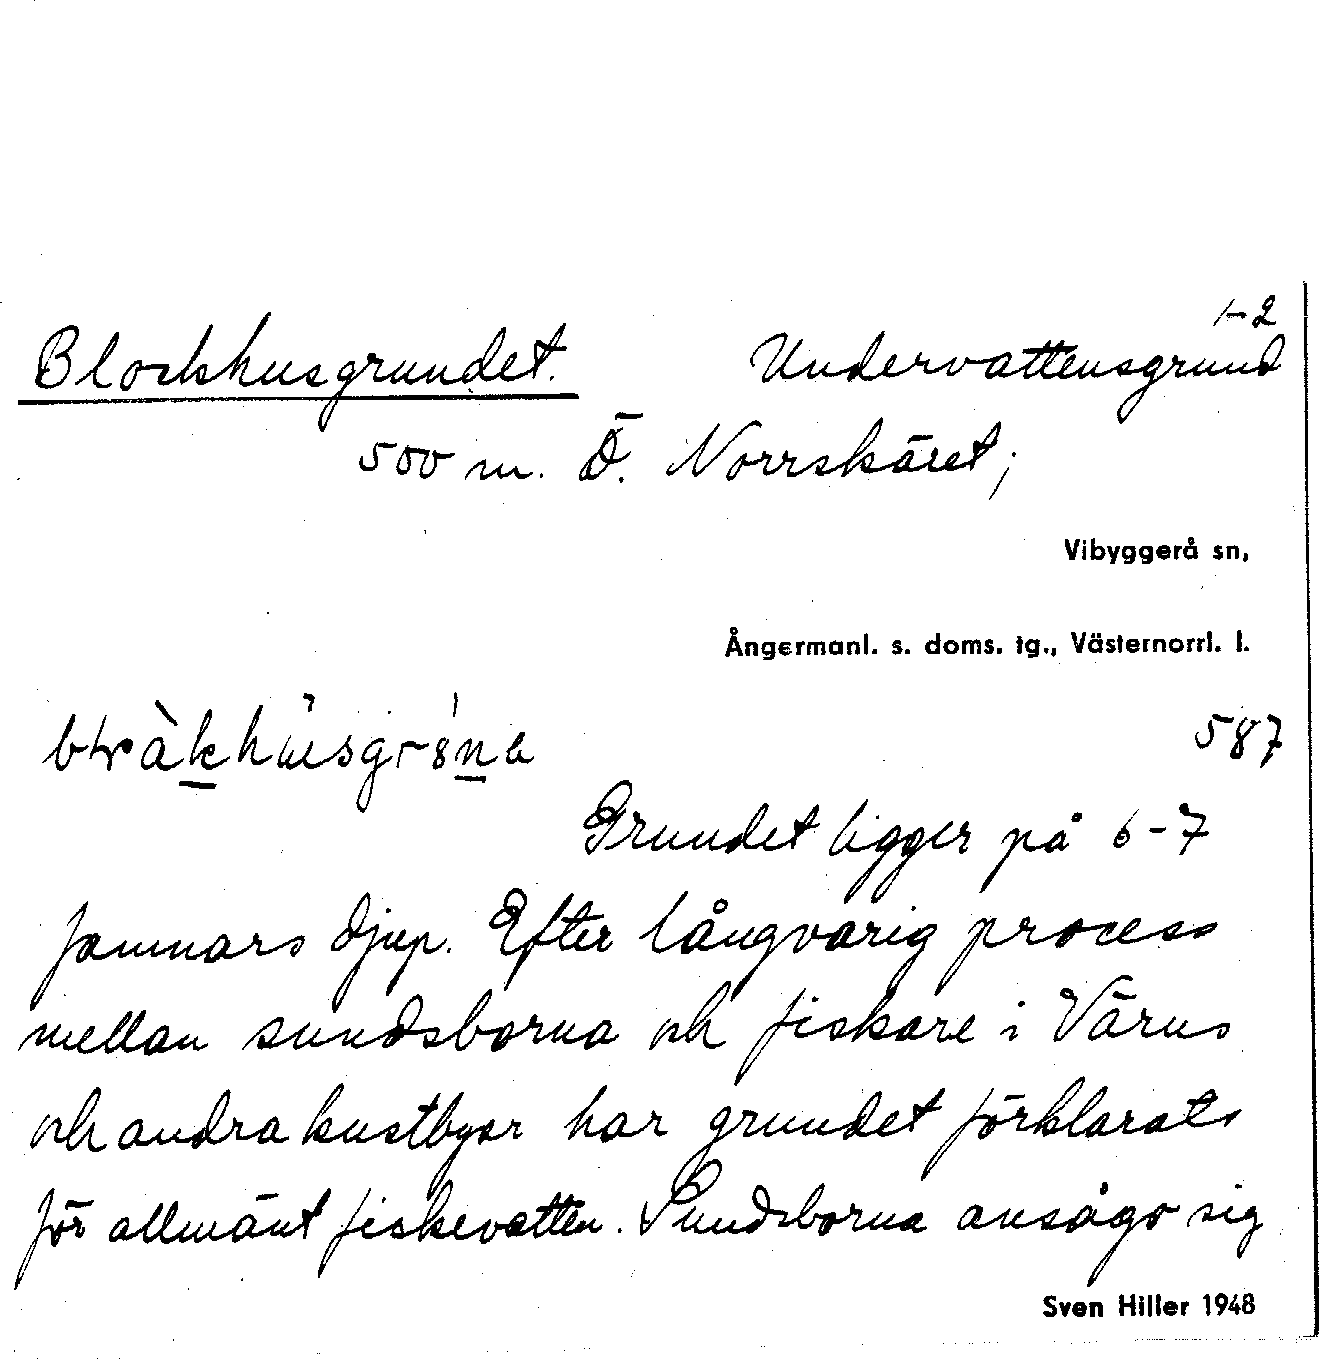 1-2
Blockhusgrundet. Undervattensgrund
500 m. Ö. Norrskäret;
Vibyggerå sn,
Ångermanl. s. doms. tg., Västernorrl. l.
587
Grundet ligger på 6-7
famnars djup. Efter långvarig process
mellan sundsborna och fiskare i Värns
och andra kustbyar har grundet förklarats
för allmänt fiskevatten. Sundsborna ansågo sig
Sven Hiller 1948